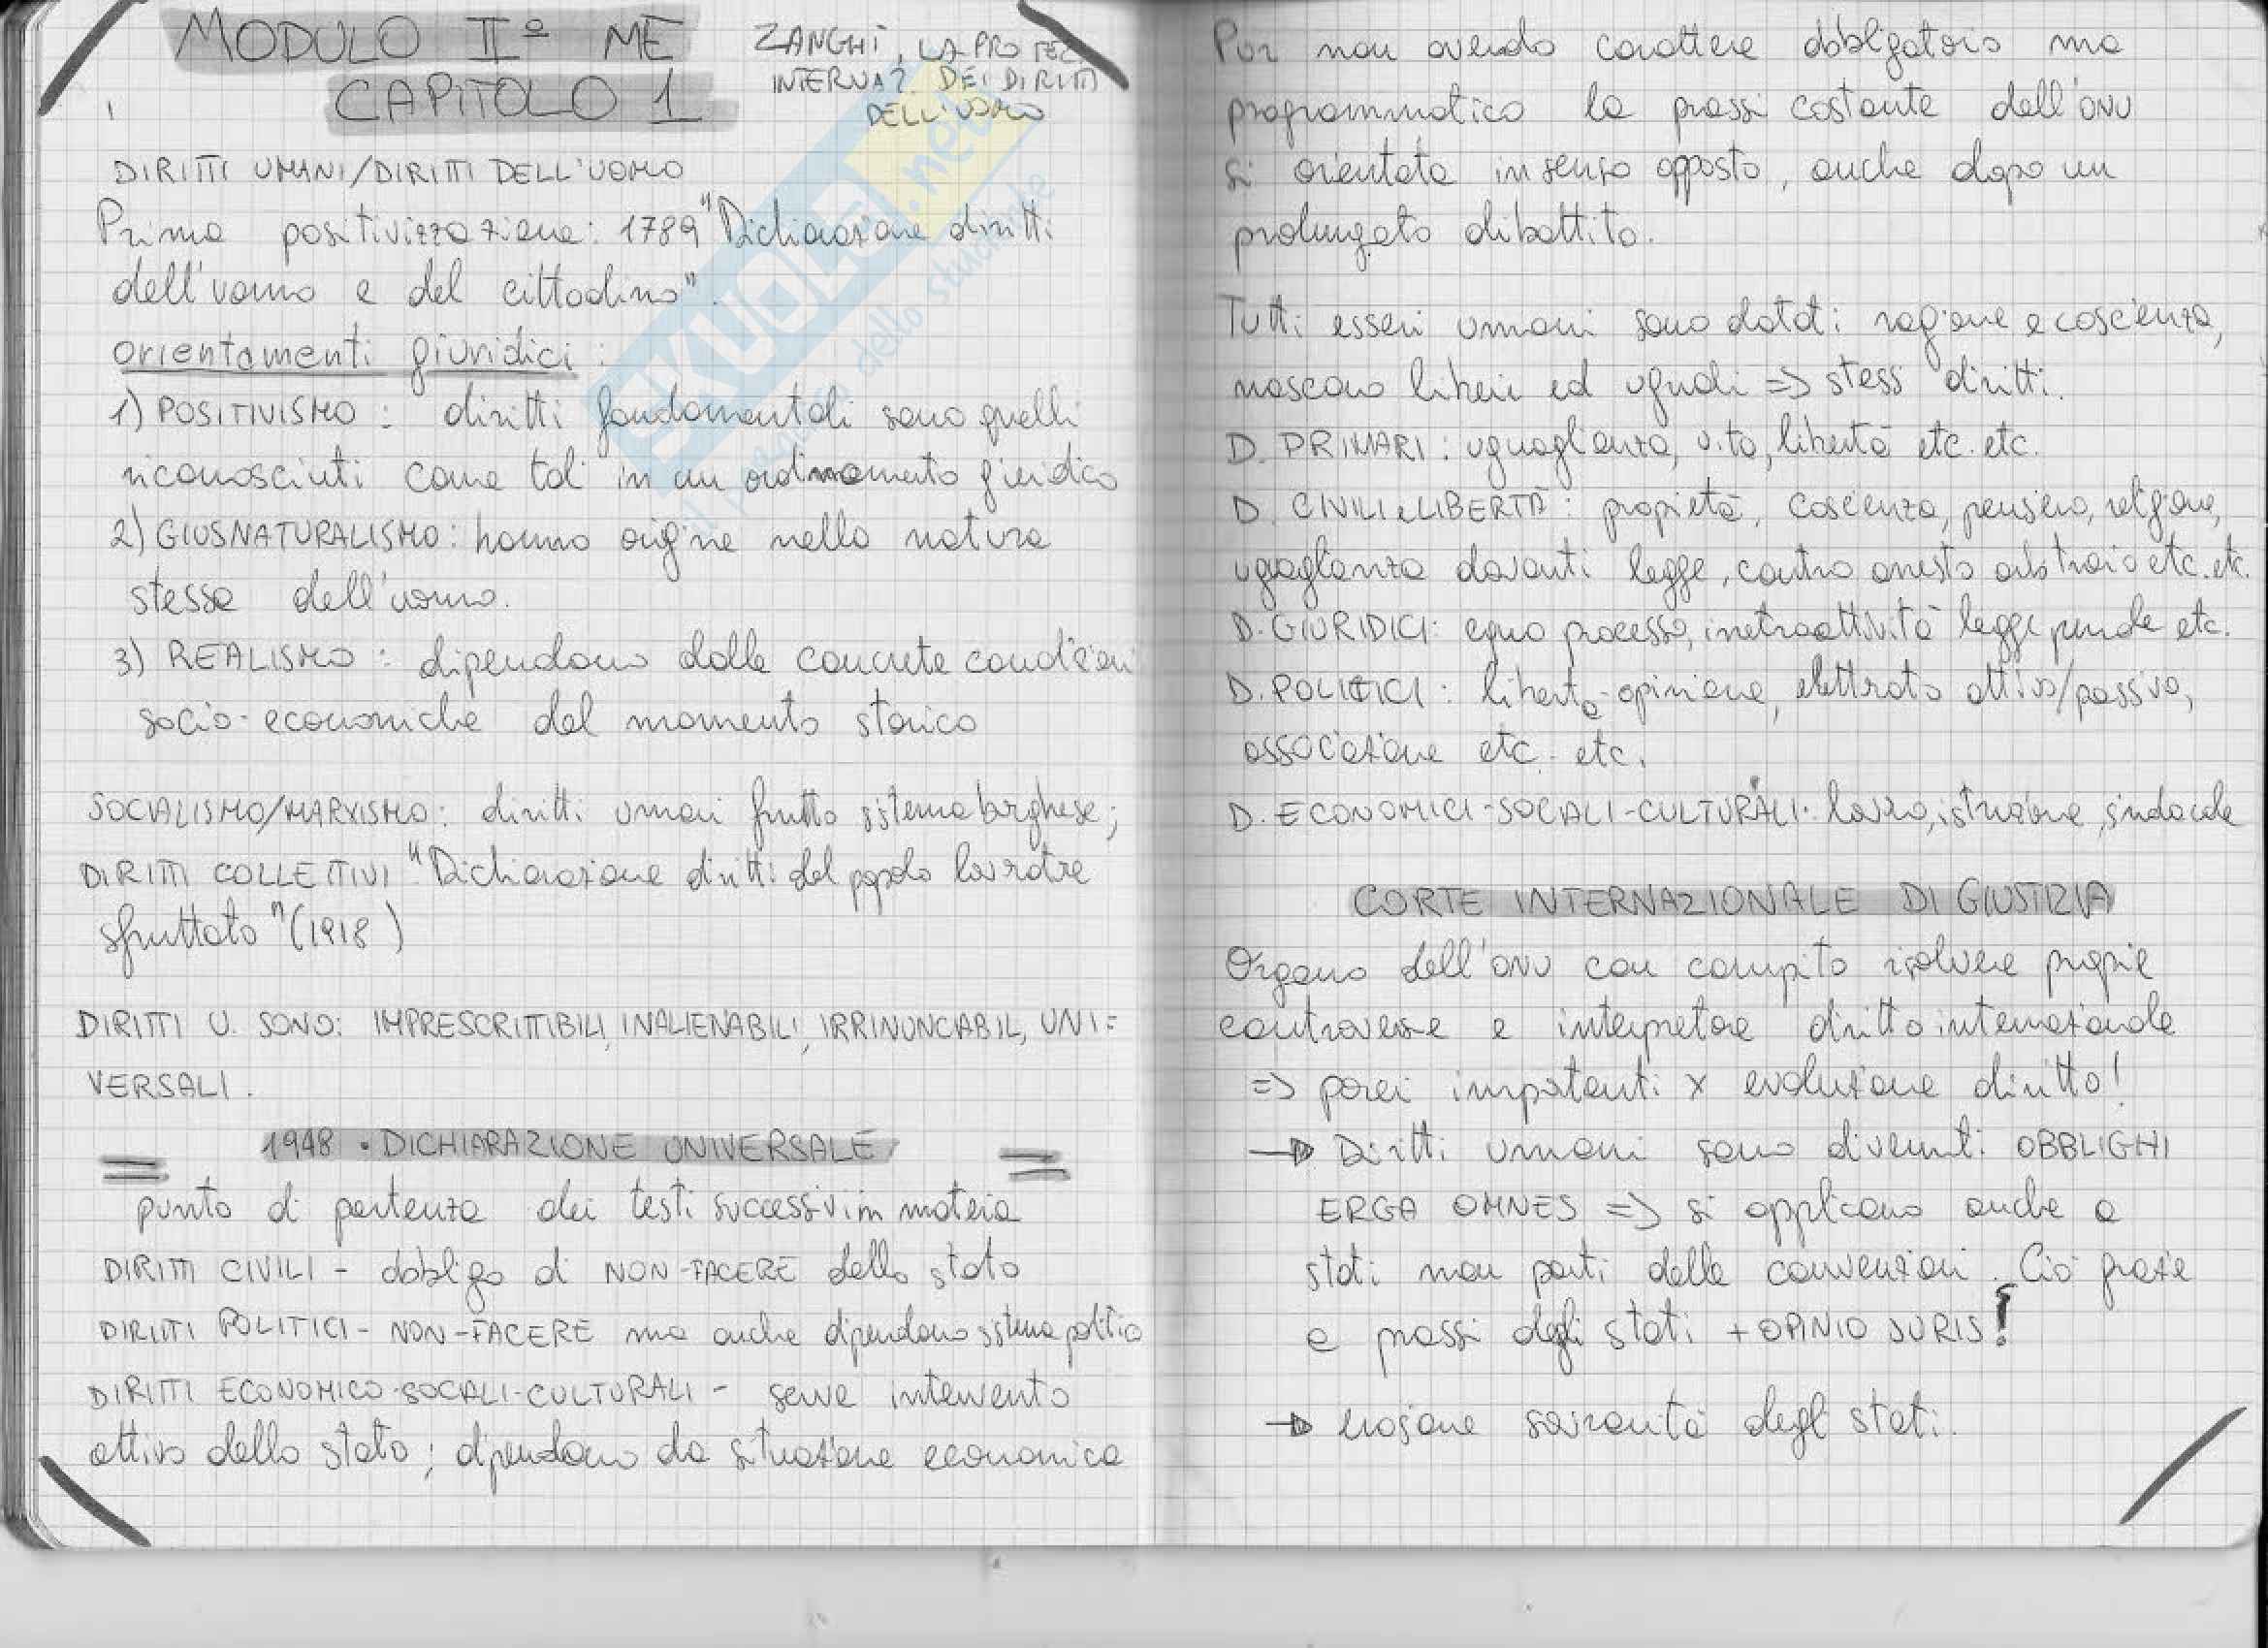 MODULO IIº ME
CAPITOLO 1
ZANGHÌ, LA PROTEZ
INTERNAZ. DEI DIRITTI
DELL'UOMO
DIRITTI UMANI/DIRITTI DELL'UOMO
Prima positivizzazione: 1789 "Dichiarazione diritti
dell'uomo e del cittadino".
orientamenti giuridici:
1) POSITIVISMO: diritti fondamentali sono quelli
riconosciuti come tali in un ordinamento giuridico
2) GIUSNATURALISMO: hanno origine nella natura
stessa dell'uomo.
3) REALISMO: dipendono dalle concrete condizioni
socio-economiche del momento storico
SOCIALISMO/MARXISMO: diritti umani frutto sistema borghese;
DIRITTI COLLETTIVI "Dichiarazione diritti del popolo lavoratore
sfruttato" (1918)
DIRITTI U. SONO: IMPRESCRITTIBILI, INALIENABILI, IRRINUNCIABIL, UNI=
VERSALI.
1948 • DICHIARAZIONE UNIVERSALE
punto di partenza dei testi successivi in materia
DIRITTI CIVILI - obbligo di NON-FACERE dello stato
DIRITTI POLITICI - NON-FACERE ma anche dipendono sistema politico
DIRITTI ECONOMICO-SOCIALI-CULTURALI - serve intervento
attivo dello stato; dipendono da situazione economica
Pur non avendo carattere obbligatorio ma
programmatico la prassi costante dell'ONU
si orientata in senso opposto, anche dopo un
prolungato dibattito.
Tutti esseri umani sono dotati ragione e coscienza,
nascono liberi ed uguali => stessi diritti.
D. PRIMARI: uguaglianza, vita, libertà etc. etc.
D. CIVILI e LIBERTÀ: proprietà, coscienza, pensiero, religione,
uguaglianza davanti legge, contro arresto arbitrario etc. etc.
D. GIURIDICI: equo processo, irretroattività legge penale etc.
D. POLITICI: libertà opinione, elettrato attivo/passivo,
associazione etc. etc.
D. ECONOMICI-SOCIALI-CULTURALI: lavoro, istruzione, sindacale
CORTE INTERNAZIONALE DI GIUSTIZIA
Organo dell'ONU con compito risolvere proprie
controversie e interpretare diritto internazionale
=> pareri importanti x evoluzione diritto!
→ Diritti umani sono divenuti OBBLIGHI
ERGA OMNES => si applicano anche a
stati non parti delle convenzioni. Ciò grazie
a prassi degli stati + OPINIO JURIS!
→ erosione sovranità degli stati.
SKUOLA.net
il paradiso dello studente